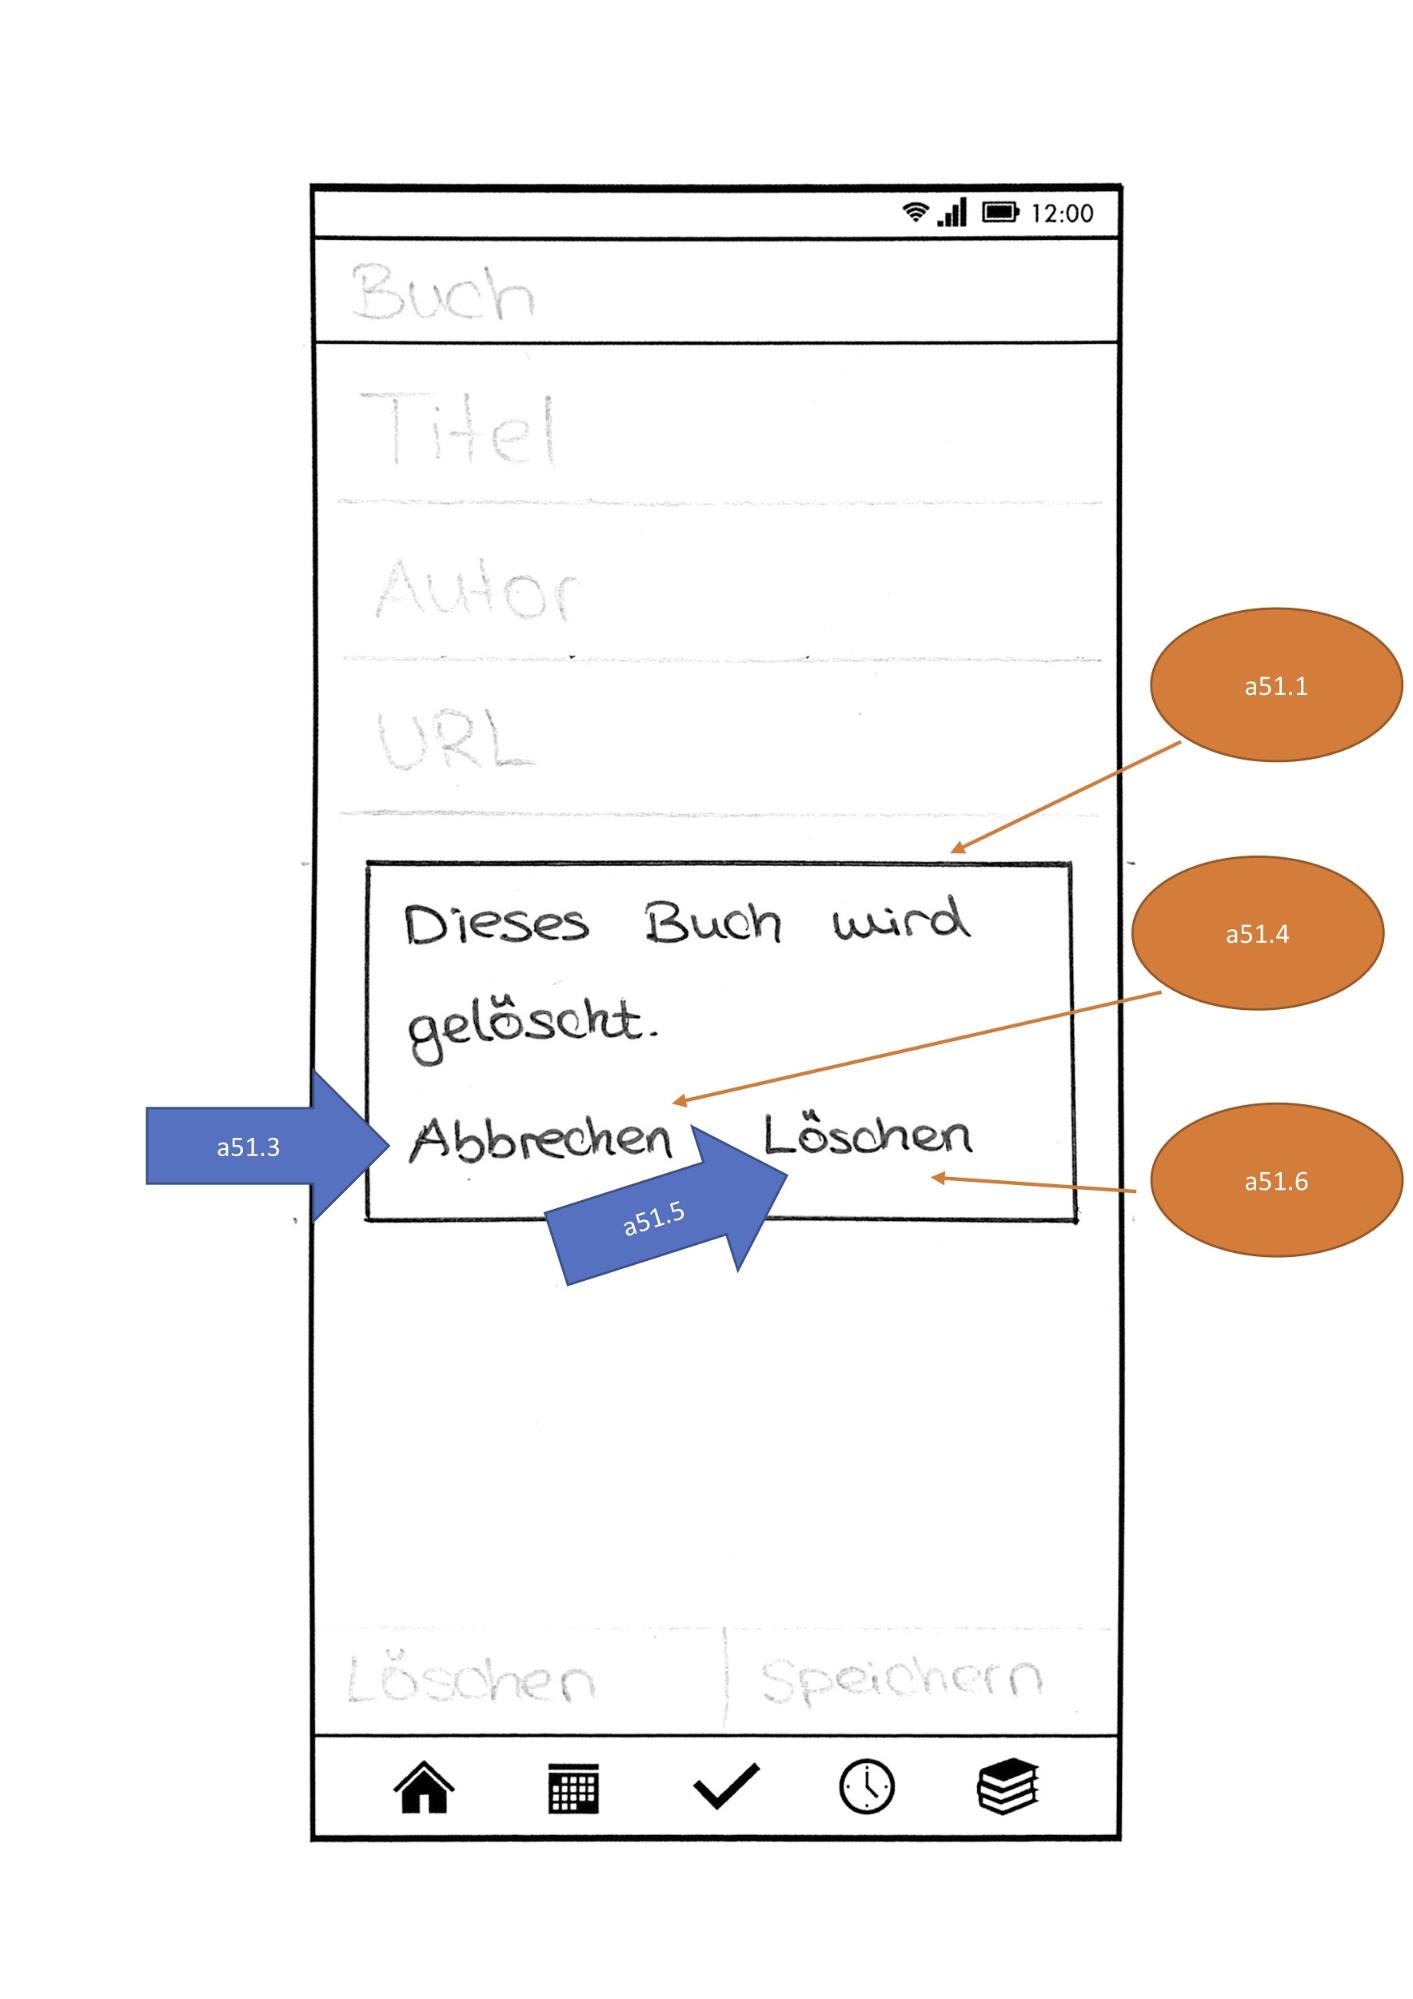 12:00
Buch
Titel
Autor
URL
a51.1
Dieses Buch wird
gelöscht.
a51.4
a51.3
Abbrechen Löschen
a51.5
a51.6
Löschen Speichern